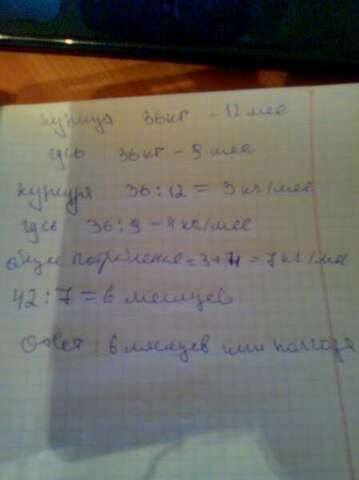 курица 36кг - 12 мес
гусь 36кг - 9 мес
курица 36:12 = 3 кг/мес
гусь 36:9 - 4 кг/мес
общее потребление = 3+4 = 7 кг/мес
42:7 = 6 месяцев
Ответ: 6 месяцев или полгода